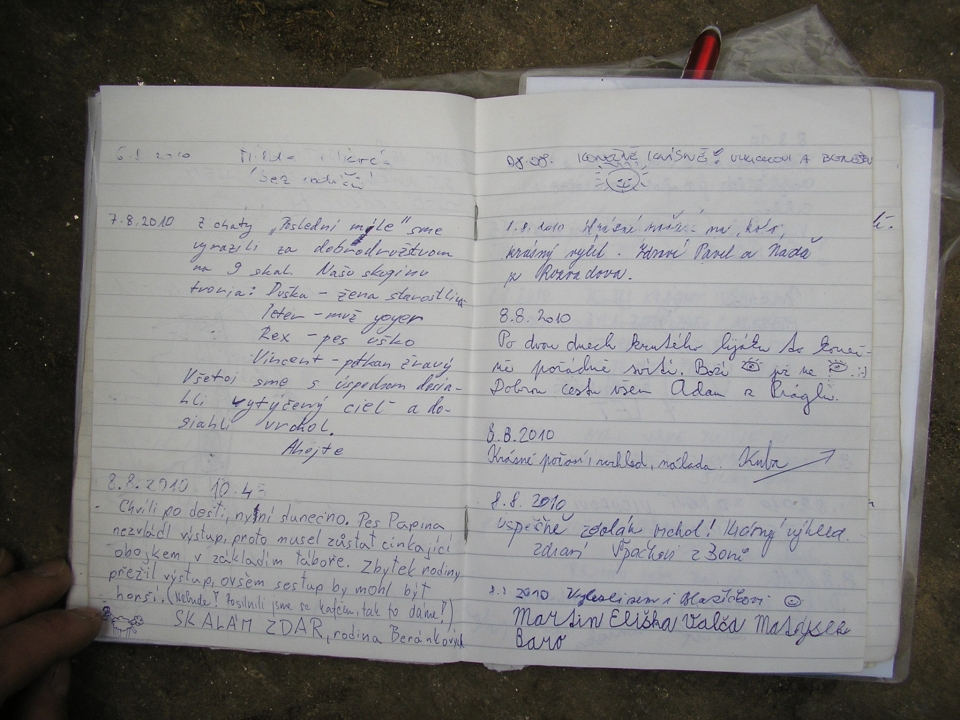 6.8.2010
bez
7.8.2010 Z chaty „Poslední míle" sme
vyrazili za dobrodružstvom
na 9 skal. Našu skupinu
tvoria: Duška - žena starostlivá
Peter - muž yoyer
Rex - pes uško
Vincent - potkan žravý
Všetci sme s úspechom
hli vytýčený cieľ a do-
siahli vrchol.
Ahojte
8.8.2010 10.4
Chvíli po dešti, nyní slunečno. Pes Papina
nezvládl výstup, proto musel zůstat cinkající
obojkem v základím táboře. Zbytek rodiny
přežil výstup, ovšem sestup by mohl být
horší. (Nebude! Posilnili jsme se kafem, tak to dáme!)
SKALÁM ZDAR, rodina Beránkových
08.08. KONEČNĚ KRÁSNĚ! A
8.8.2010 Krásné
krásný výlet. Zdraví Pavel a Naďa
z Rozvadova.
8.8.2010
Po dvou dnech krutého lijáku to koneč-
ně pořádně svítí. Boží :)
Dobrou cestu všem Adam z Práglu.
8.8.2010
Krásné počasí, rozhled, nálada. Kuba
8.8.2010
Úspěšně zdolán vrchol! Krásný výhled.
zdraví z Brna
8.8.2010 Vylezli jsem i
Martin Eliška Valča Matýsek
Baro